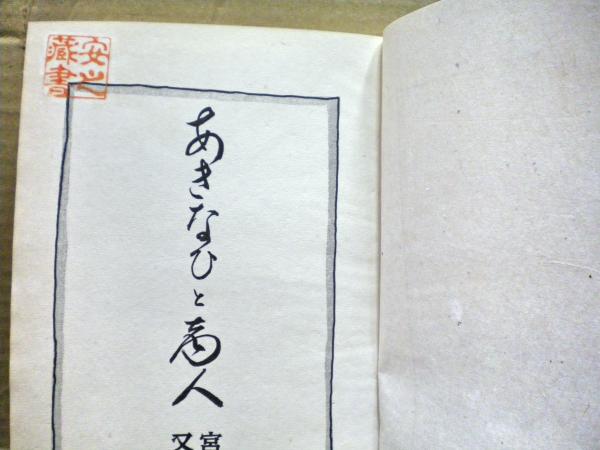 安之
蔵書
あきなひと商人
宮
又